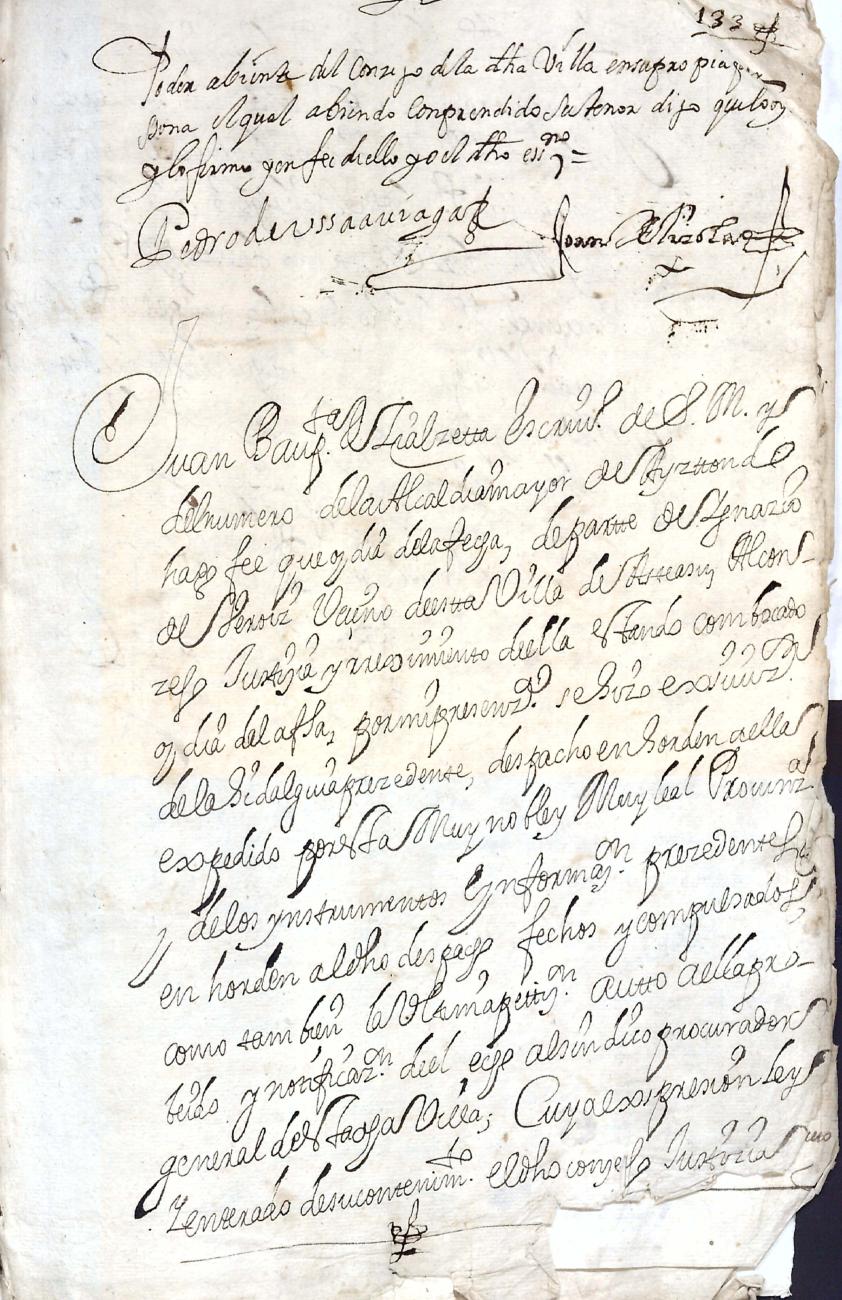 133
Poder abiente del Conzejo de la dha Villa en su propia per
sona el qual abiendo Conprendido su tenor dijo que lo oy
y lo firmo y en fee de ello yo el dho essno =
Pedro de ussaauiaga Joan de
Juan Bauptta de Lizalzetta Escriuo. de S. M. y
del numero de la Alcaldia mayor de Ayztondo
hago fee que oy dia de la fecha, de parte de Ygnazio
de Veçino de esta Villa de Asteasu, Al Con-
zejo Justiçia y rreximiento de ella estando combocado
oy dia de la fha, por mi presenzia se hizo exsiuizn.
de la hidalguia prezedente, despacho en horden a ella
expedido por esta Muy noble y Muy leal Prouinza.
y de los ynstrumentos e ynformaçn. prezedentes,
en horden al dho despacho fechos y compulsados,
como tambien la Vltima petiçn. autto a ella pro-
beido y notificazn. de el echa al sindico procurador
general de esta dha Villa; Cuya exspresion ley
Y enterado de su contenimto. el dho conzejo Justizia